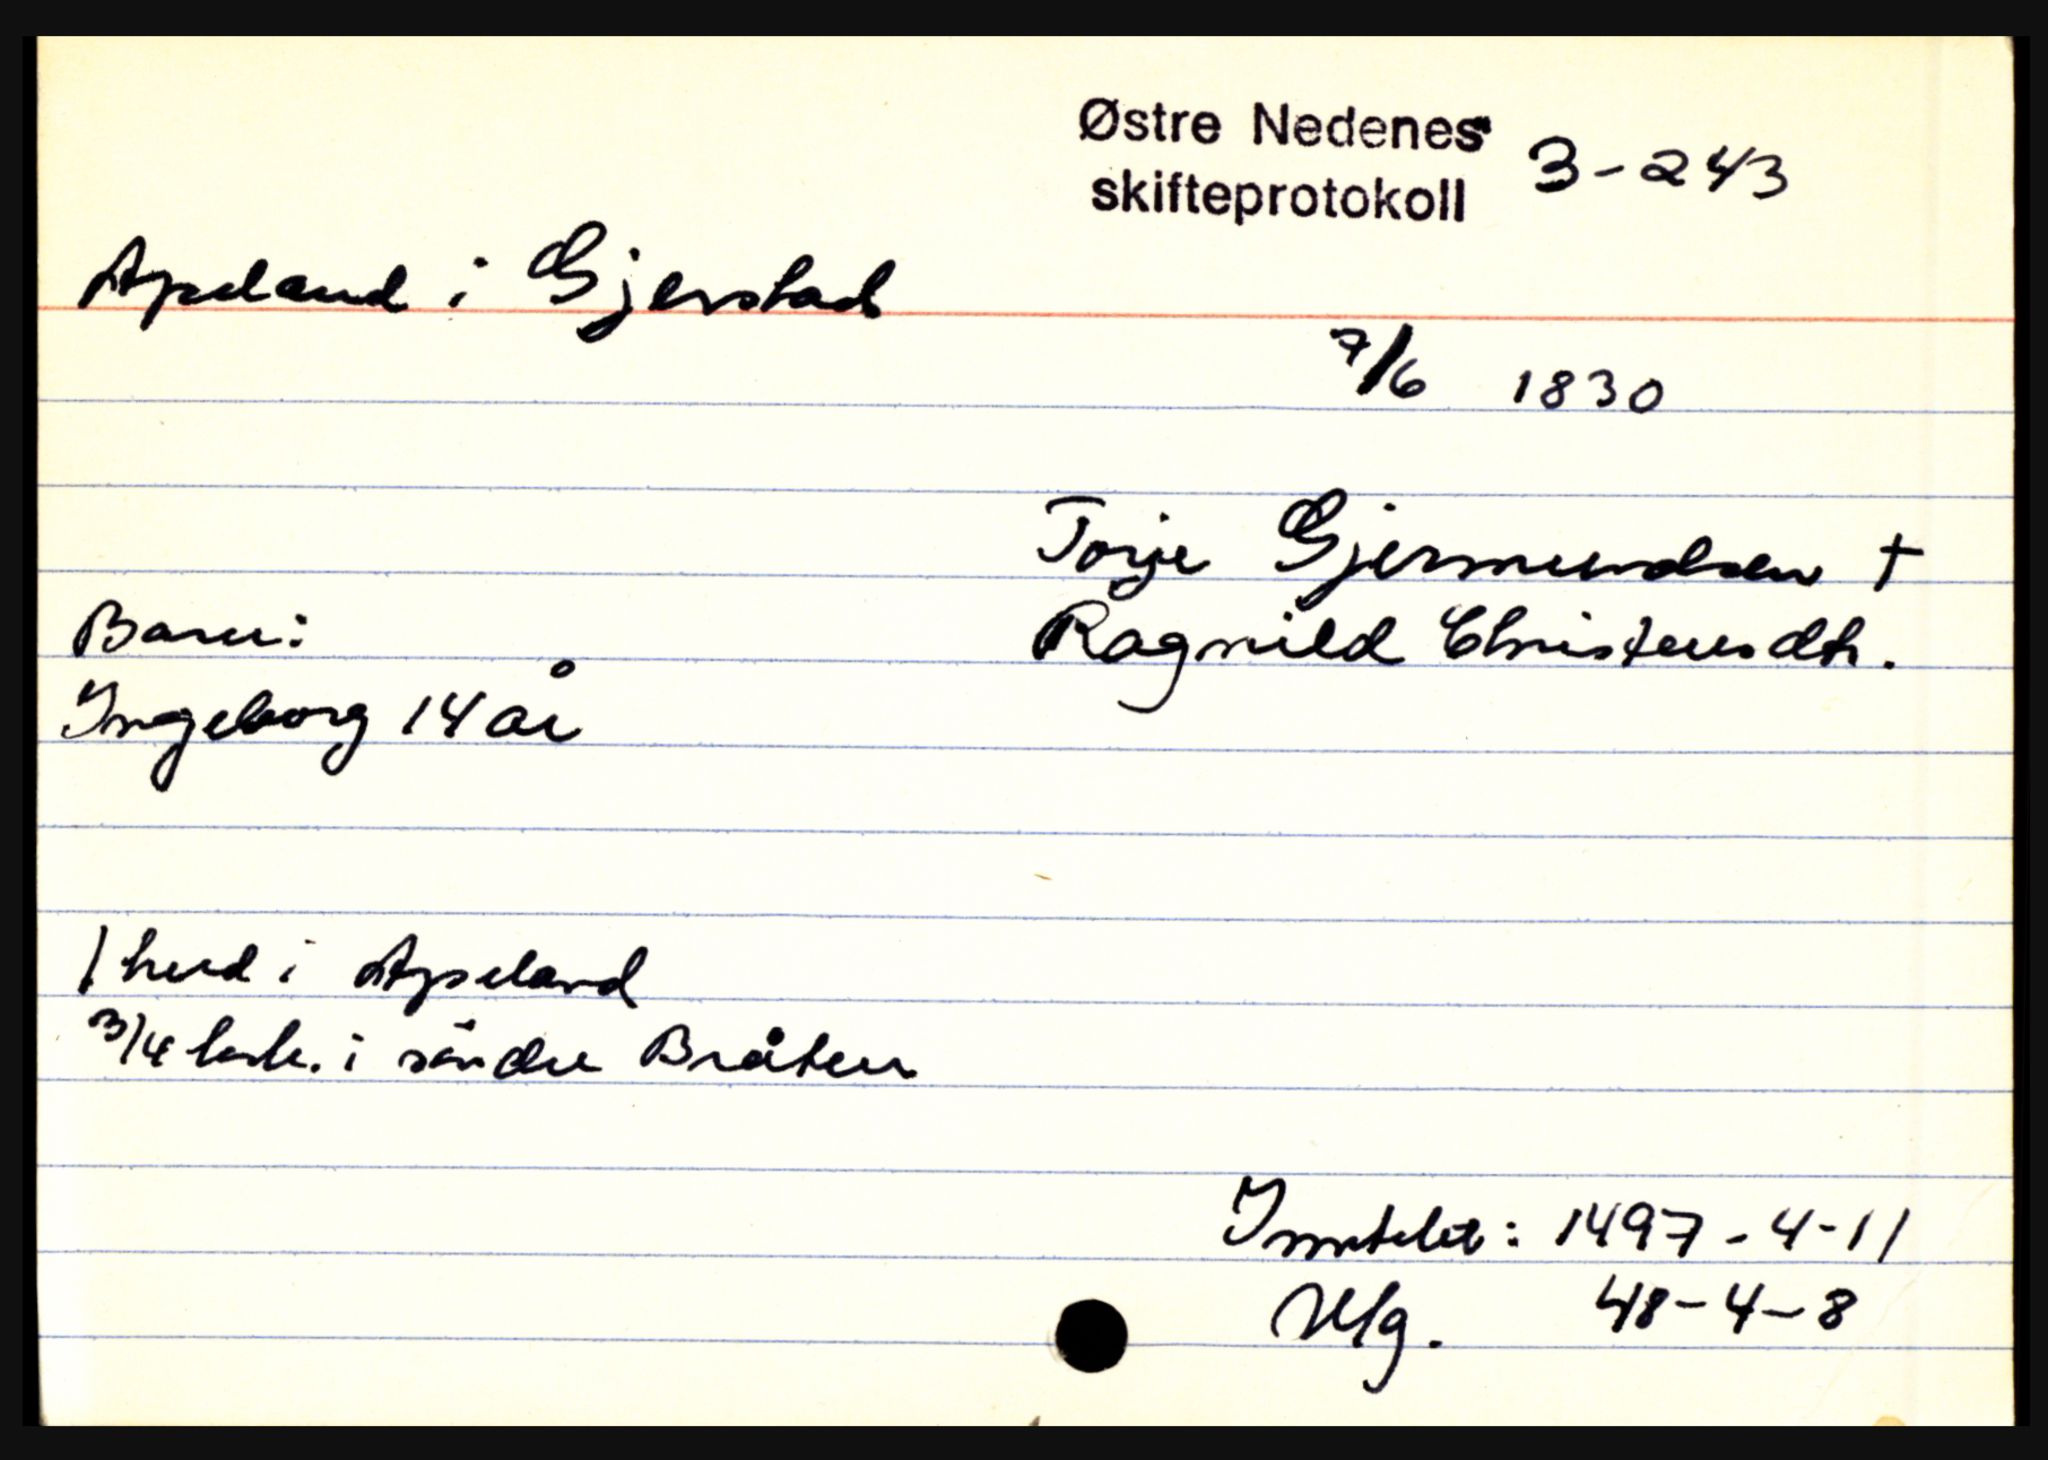 Østre Nedenes 3-243
skifteprotokoll
Apeland i Gjerstad
7/6 1830
Torje Gjermundsen †
Ragnild Christensdtr.
Barn:
Ingeborg 14 år
1 hud i Apeland
3/4 kalv. i søndre Bråten
Inntekt: 1497-4-11
Utg. 48-4-8